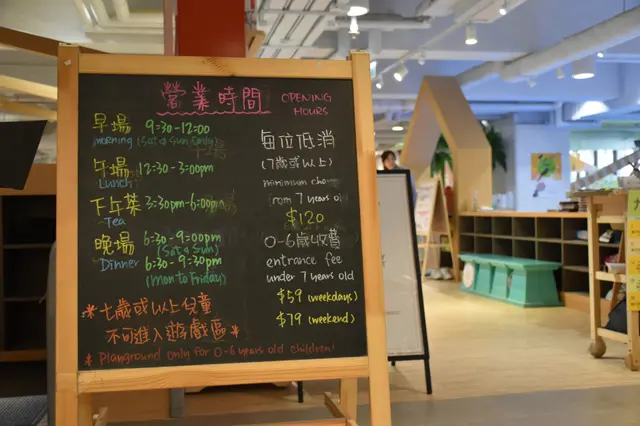 營業時間 OPENING HOURS
早場 9:30-12:00
morning (Sat & Sun Only)
午場 12:30-3:00pm
Lunch
下午茶 3:30pm-6:00pm
Tea
晚場 6:30-9:00pm
(Sat & Sun)
Dinner 6:30-9:30pm
(Mon to Friday)
每位低消
(7歲或以上)
minimum
from 7 years old
$120
0-6歲收費
entrance fee
under 7 years old
$59 (weekdays)
$79 (weekend)
*七歲或以上兒童
不可進入遊戲區*
* Playground only for 0-6 years old children!